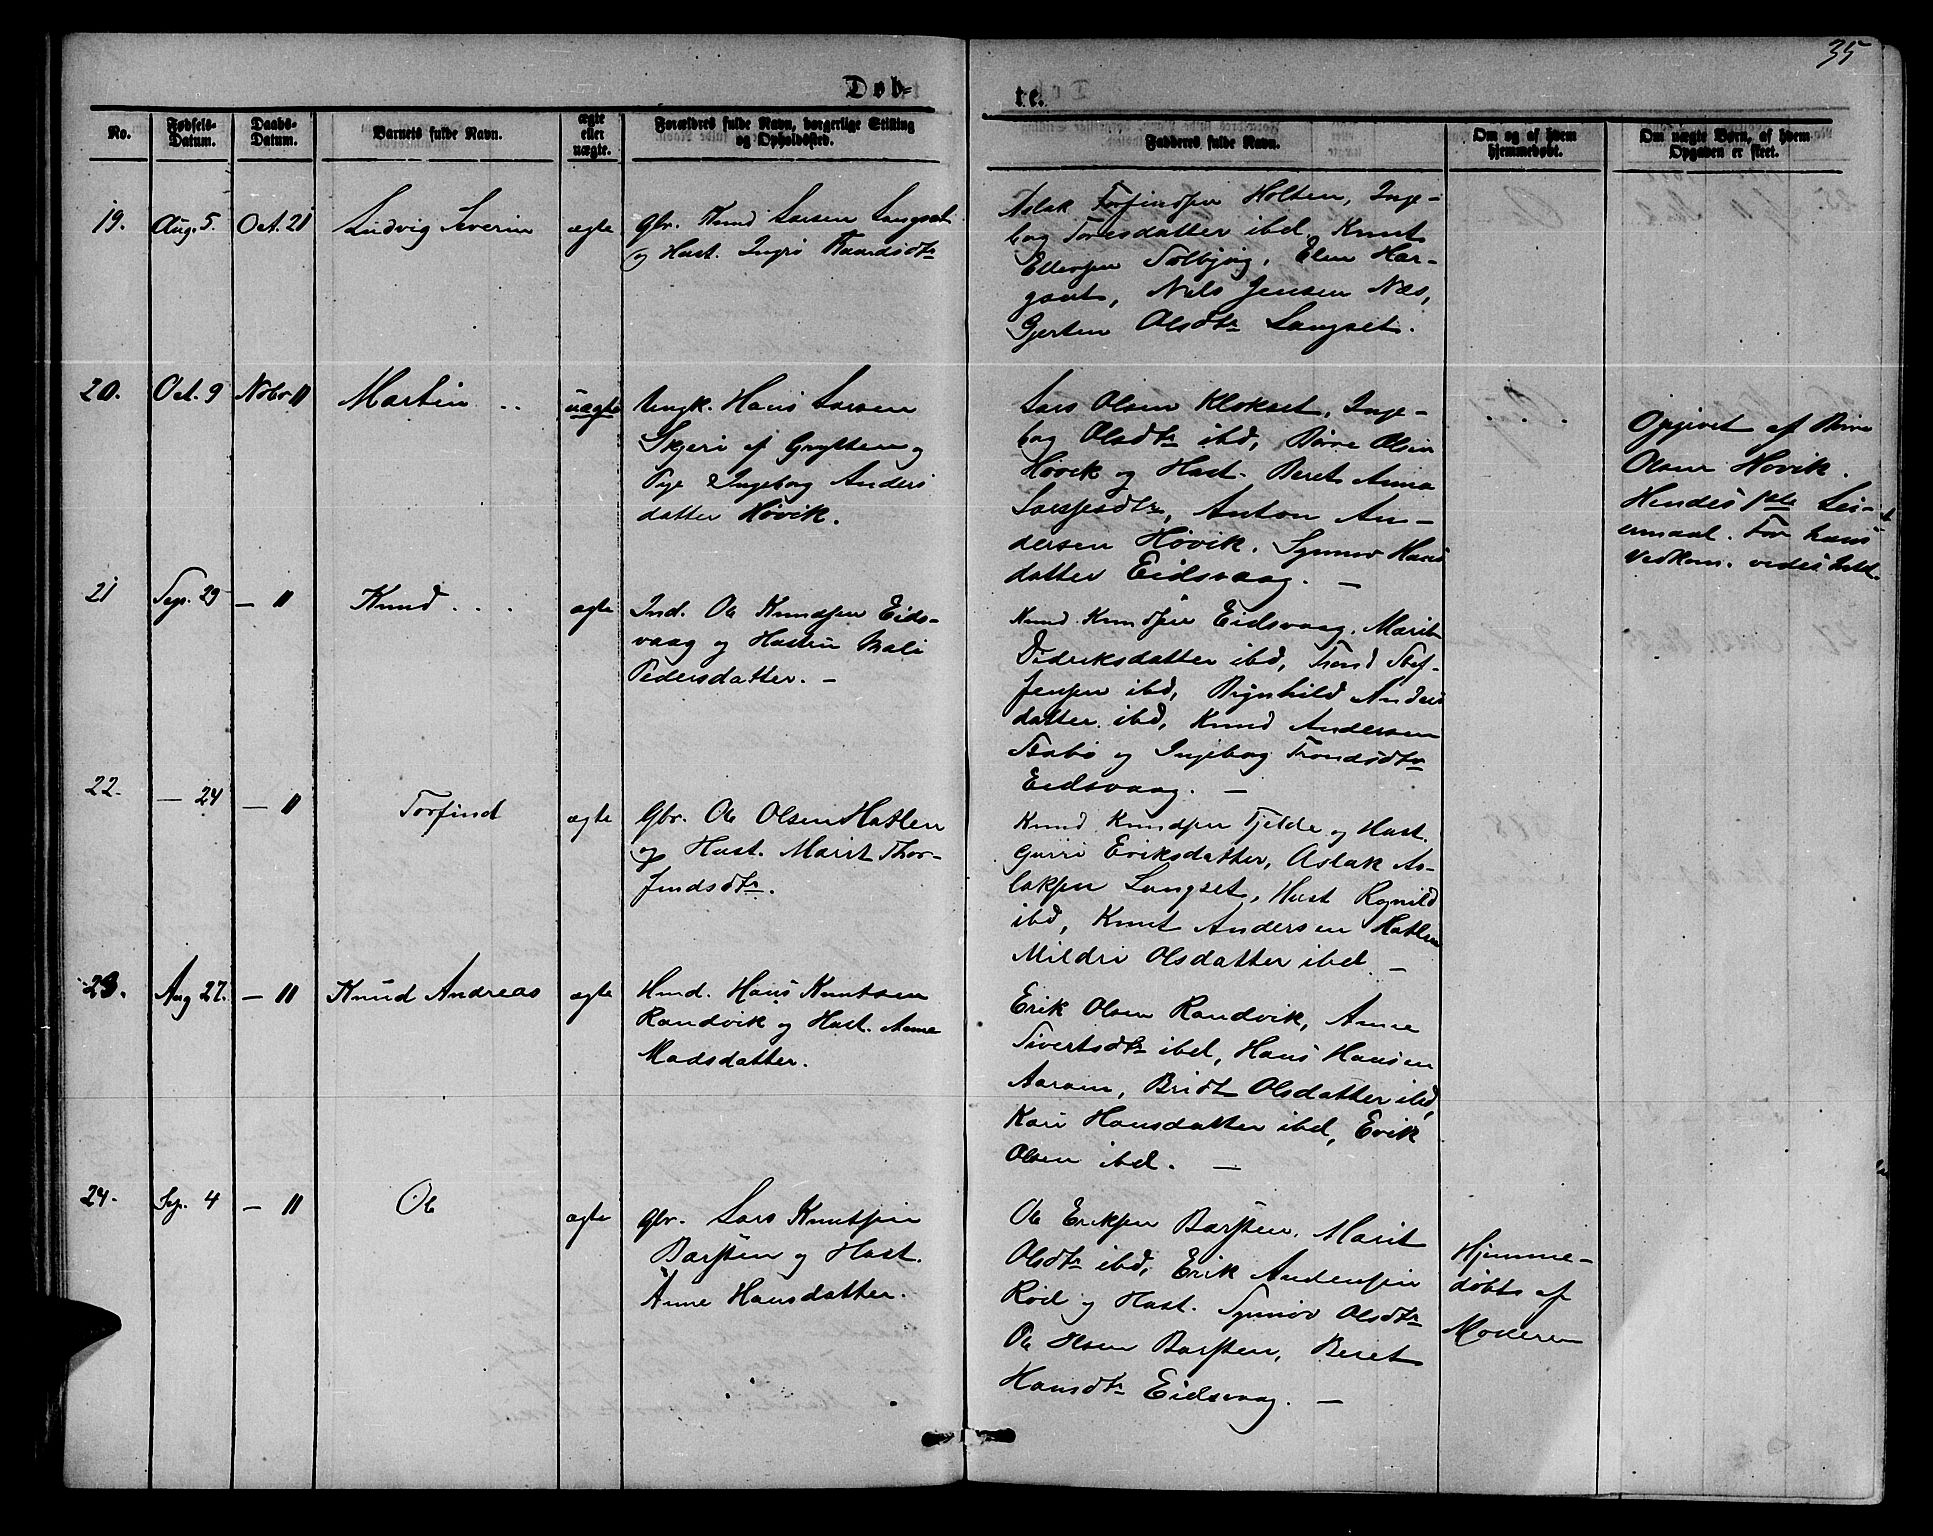 35
Døb-
te.
No.
Fødsels-
Datum.
Daabs-
Datum.
Barnets fulde Navn.
ægte
eller
uægte.
Forældres fulde Navn, borgerlige Stilling
og Opholdssted.
Fadderes fulde Navn.
Om og af hvem
hjemmedøbt.
Om uægte Børn, af hvem
Opgaven er skeet.
19.
Aug. 5.
Oct. 21
Ludvig Severin
ægte
Gbr. Knud Larsen Langset
og Hust. Ingri
Aslak Torfindsen Holten, Inge-
borg Toresdatter ibd, Knut
Ellevsen Solbjørg, Elen Har-
gaut, Nils Jensen Næs,
Gjertru Olsdtr Langset.
20.
Oct. 9
Nobr 11
Martin
uægte
Ungk. Hans Larsen
Skjeri af Grytten og
Pige Ingeborg Anders
datter Høvik.
Lars Olsen Klokset, Inge-
borg Olsdtr ibd, Børre Olsen
Høvik og Hust. Beret Anna
Anton An-
dersen Høvik. Synnøv Hans
datter Eidsvaag. —
Opgivet af Børre
Olsen Høvik.
Hendes 1ste Lei-
ermaal. For hans
Vedkom. vides
21
Sep. 29
— 11
Knud
ægte
Ind. Ole Knudsen Eids-
vaag og Hustru Mali
Pedersdatter. —
Knud Knudsen Eidsvaag, Marit
Didriksdatter ibd, Trond Stef-
fensen ibd, Brynhild Anders
datter ibd, Knud Andersen
og Ingeborg Trondsdtr
Eidsvaag. —
22.
— 24
— 11
Torfind
ægte
Gbr. Ole Olsen Hatlen
og Hust. Marit Thor-
findsdtr.
Knud Knudsen Fjelde og Hust.
Gurri Eriksdatter, Aslak As-
laksen Langset, Hust Ragnild
ibd, Knut Andersen Hatlen
Mildri Olsdatter ibd —
23.
Aug 27.
— 11
Knud Andreas
ægte
Hmd. Hans Knutsen
Randvik og Hust. Anne
Madsdatter.
Erik Olsen Randvik, Anne
Sivertsdtr ibd, Hans Hansen
Aaram, Bridt Olsdatter ibd,
Kari Hansdatter ibd, Erik
Olsen ibd. —
24.
Sep. 4
— 11
Ole
ægte
Gbr. Lars Knutsen
Barsten og Hust.
Anne Hansdatter.
Ole Eriksen Barsten, Marit
Olsdtr ibd, Erik Andersen
Rød og Hust. Synnøv Olsdtr
Ole Olsen Barsten, Beret
Hansdtr Eidsvaag. —
Hjemme-
døbt af
Moderen